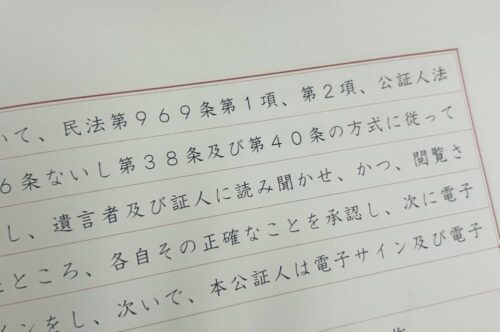 いて、民法第969条第1項、第2項、公証人法
6条ないし第38条及び第40条の方式に従って
し、遺言者及び証人に読み聞かせ、かつ、閲覧さ
ところ、各自その正確なことを承認し、次に電子
インをし、次いで、本公証人は電子サイン及び電子